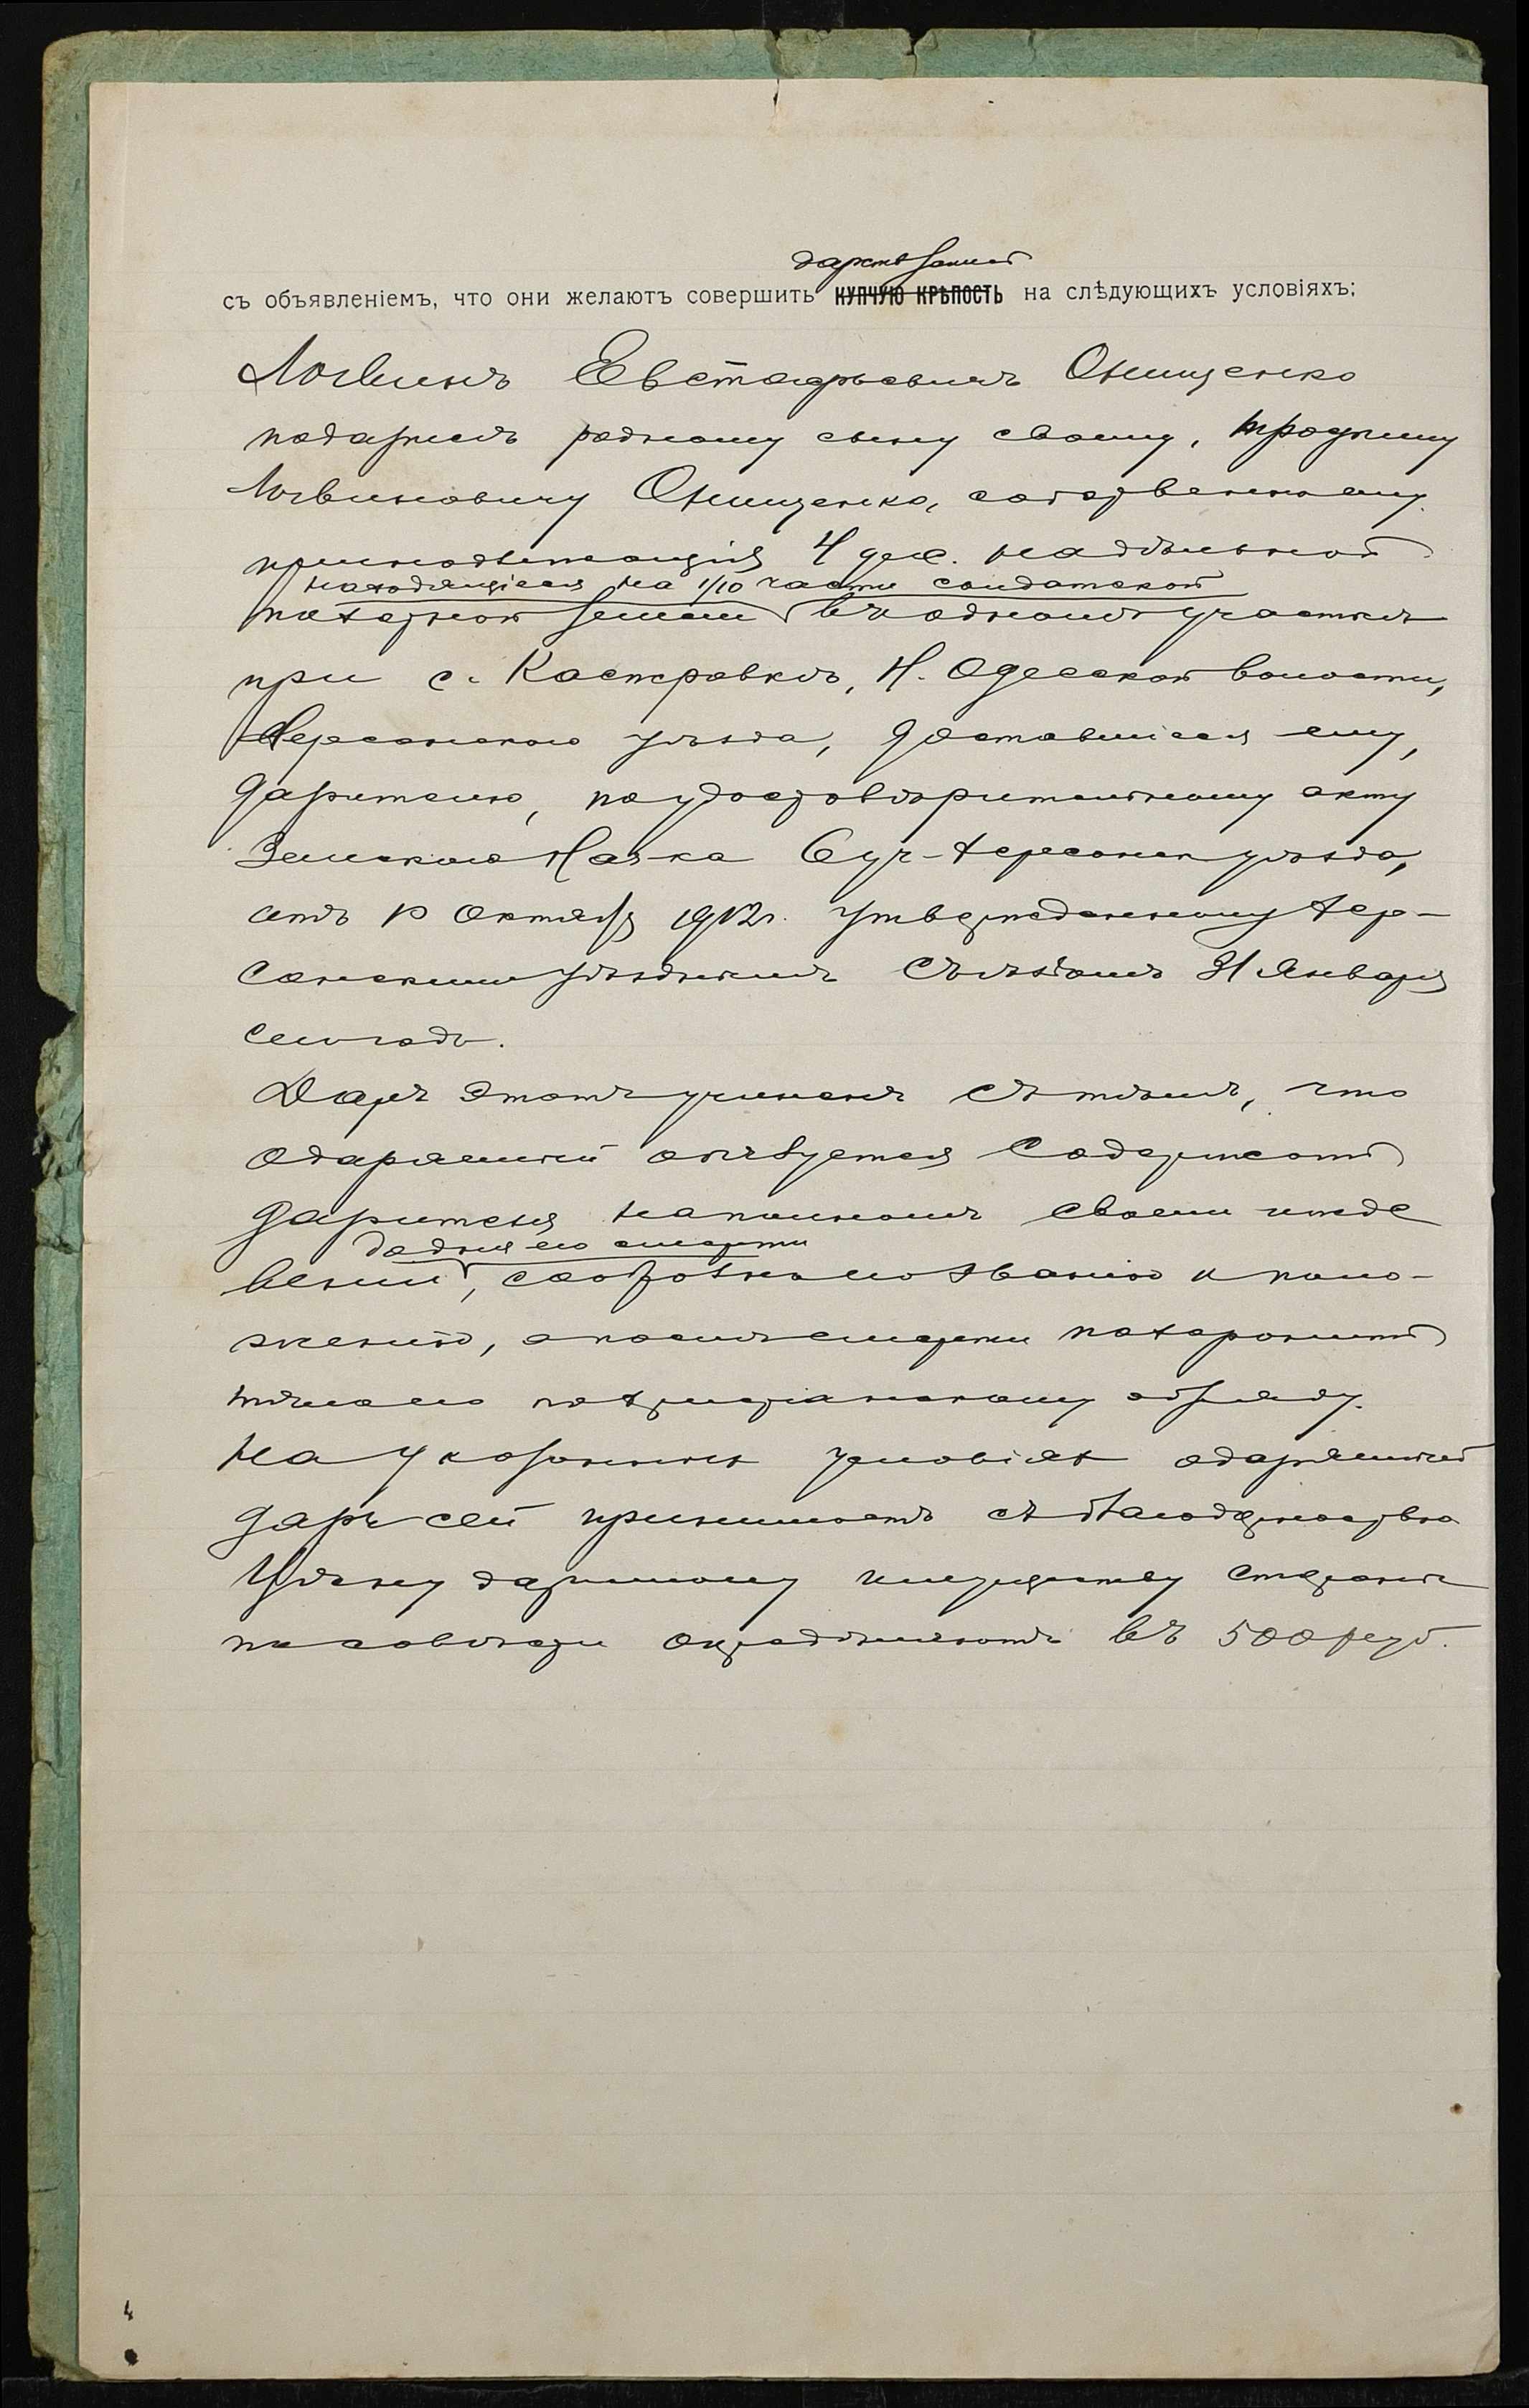 дарств запись
съ объявленіемъ, что они желаютъ совершить КУПЧУЮ КРѢПОСТЬ на слѣдующихъ условіяхъ:
Логвинъ Евстафьевичъ Онищенко
подарилъ родному сыну своему, Трофиму
Логвиновичу Онищенко, собственному
принадлежащія 4 дес. надѣльной
находящіеся на 1/10 части солдатской
пахатной земли въ одномъ участкѣ
при с. Касперовкѣ, Н. Одесской волости,
Херсонскаго уѣзда, доставшіеся ему,
дарителю, по удостовѣрительному акту
Земскаго Нач-ка 6 уч. Херсонск уѣзда,
отъ 10 Октября 1912 г. утвержденному Хер-
сонскимъ уѣзднымъ Съѣздомъ 31 Января
сего года.
Даръ этотъ учиненъ съ тѣмъ, что
одаряемый обязуется содержать
дарителя на полномъ своемъ ижде
до дня его смерти
веніи, сообразно его званію и поло-
женію, а послѣ смерти похоронить
тѣло его по христіанскому обряду.
На указанныхъ условіяхъ одаряемый
даръ сей принимаетъ съ благодарностью
Цѣну даримому имуществу стороны
по совѣсти опредѣляютъ въ 500 руб.
4